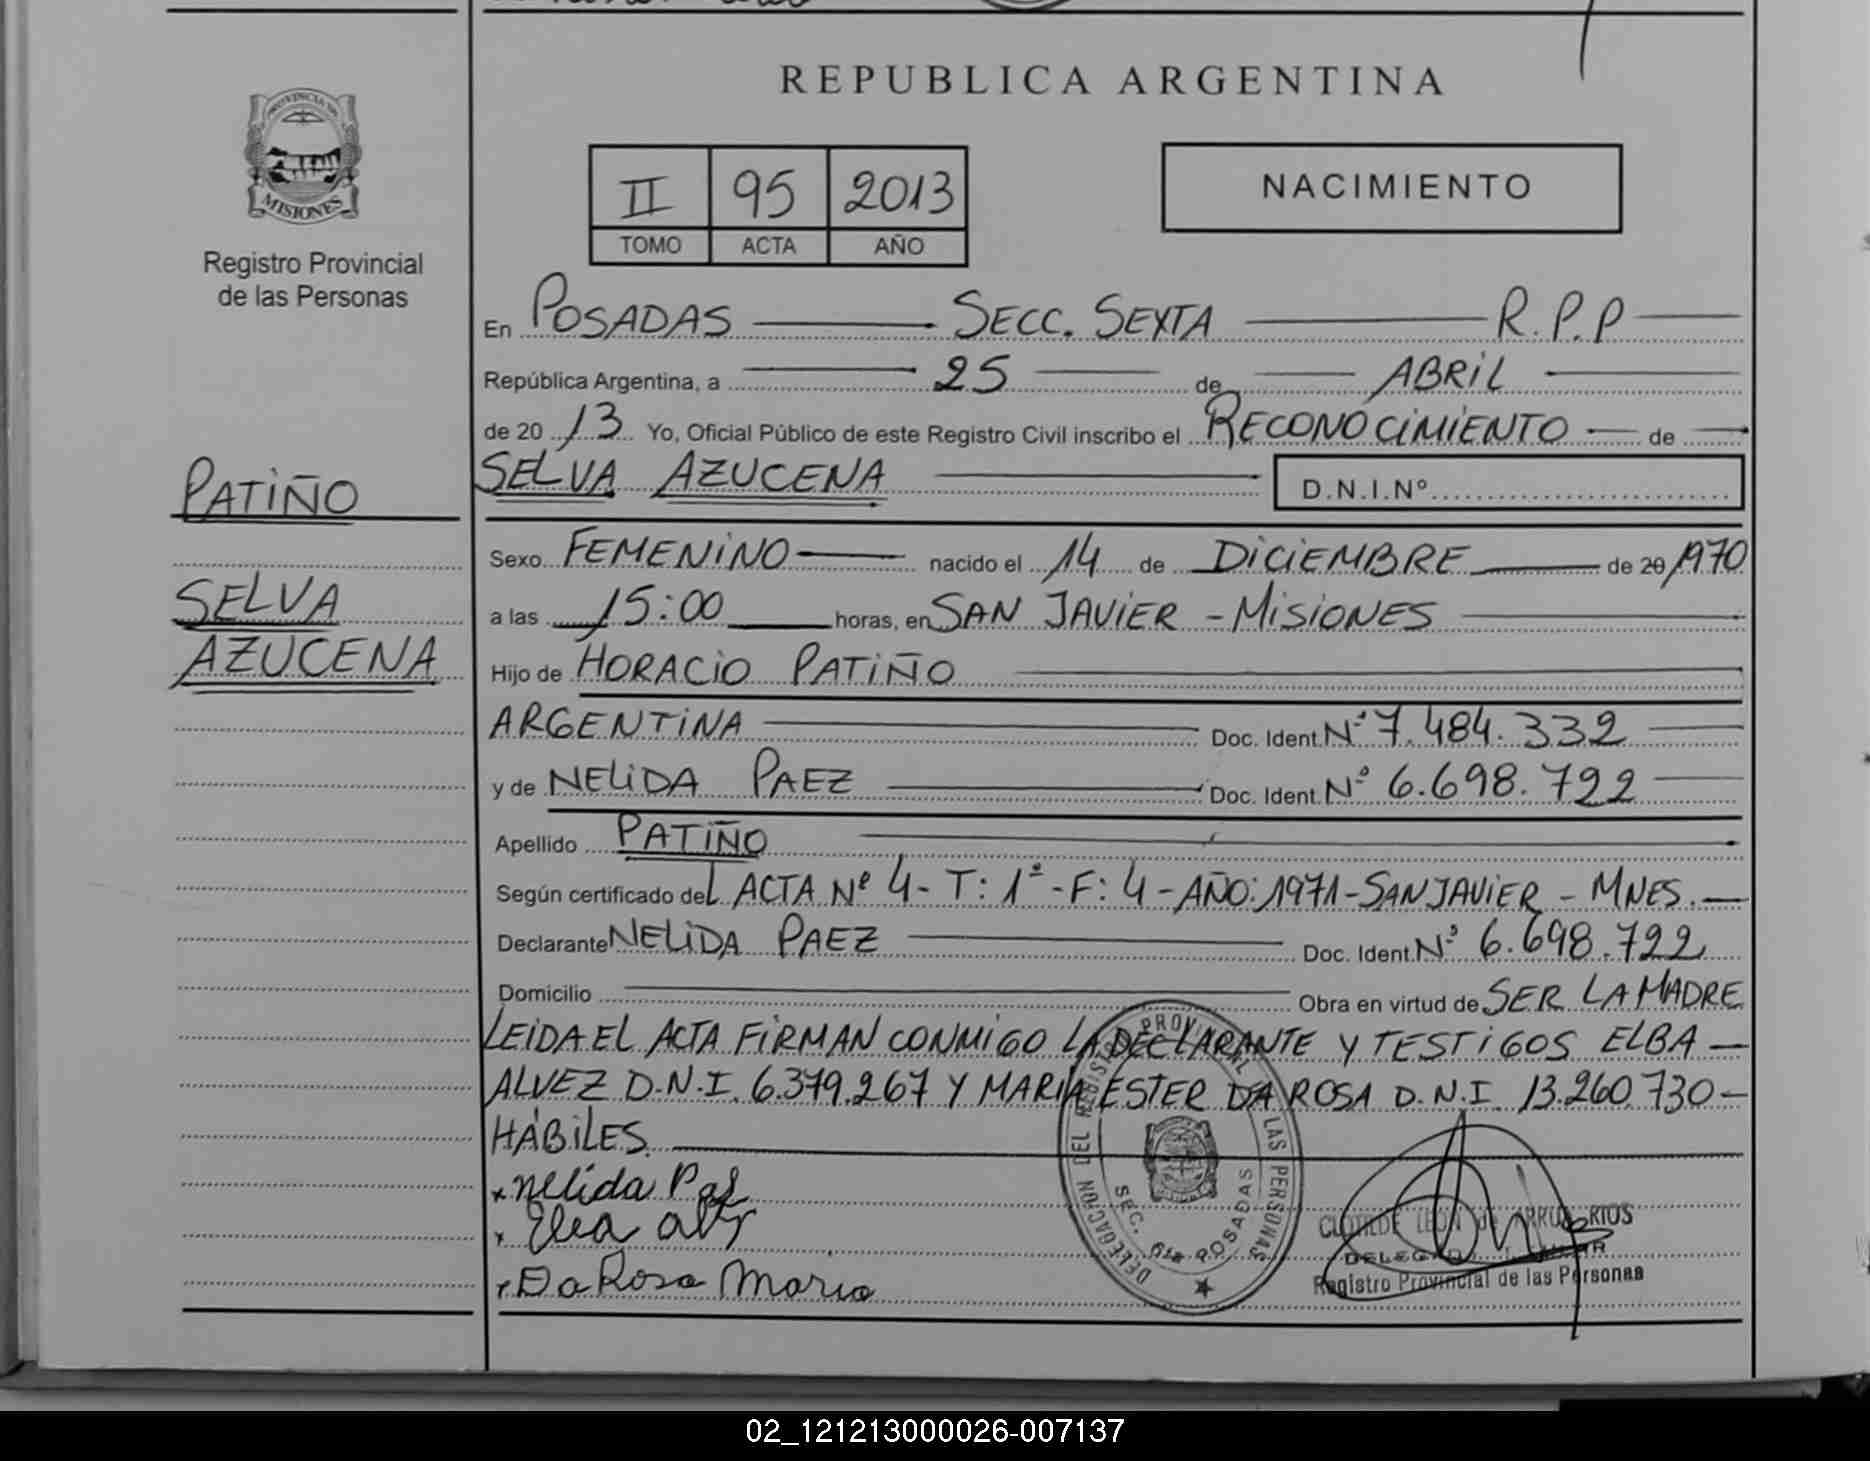 REPUBLICA ARGENTINA
PROVINCIA DE
MISIONES
Registro Provincial
de las Personas
II 95 2013
TOMO ACTA AÑO
NACIMIENTO
En POSADAS SECC. SEXTA R.P.P
República Argentina, a 25 de ABRIL
de 2013 Yo, Oficial Público de este Registro Civil inscribo el RECONOCIMIENTO de
PATIÑO
SELVA AZUCENA D.N.I.Nº
Sexo FEMENINO nacido el 14 de DICIEMBRE de 20 1970
SELVA
a las 15:00 horas, en SAN JAVIER - MISIONES
AZUCENA
Hijo de HORACIO PATIÑO
ARGENTINA Doc. Ident. Nº 7.484.332
y de NELIDA PAEZ Doc. Ident. Nº 6.698.722
Apellido PATIÑO
Según certificado del ACTA Nº 4 - T: 1º - F: 4 - AÑO: 1971 - SAN JAVIER - MNES.
Declarante NELIDA PAEZ Doc. Ident. Nº 6.698.722
Domicilio Obra en virtud de SER LA MADRE
LEIDA EL ACTA FIRMAN CONMIGO LA DECLARANTE Y TESTIGOS ELBA
ALVEZ D.N.I. 6.379.267 Y MARIA ESTER DA ROSA D.N.I. 13.260.730
HÁBILES
x nelida
x
x Da Rosa Maria
DELEGACION DEL REGISTRO PROVINCIAL DE LAS PERSONAS
SEC. 6ta POSADAS
CLOTILDE LEON DE RIOS
Registro Provincial de las Personas
02_121213000026-007137